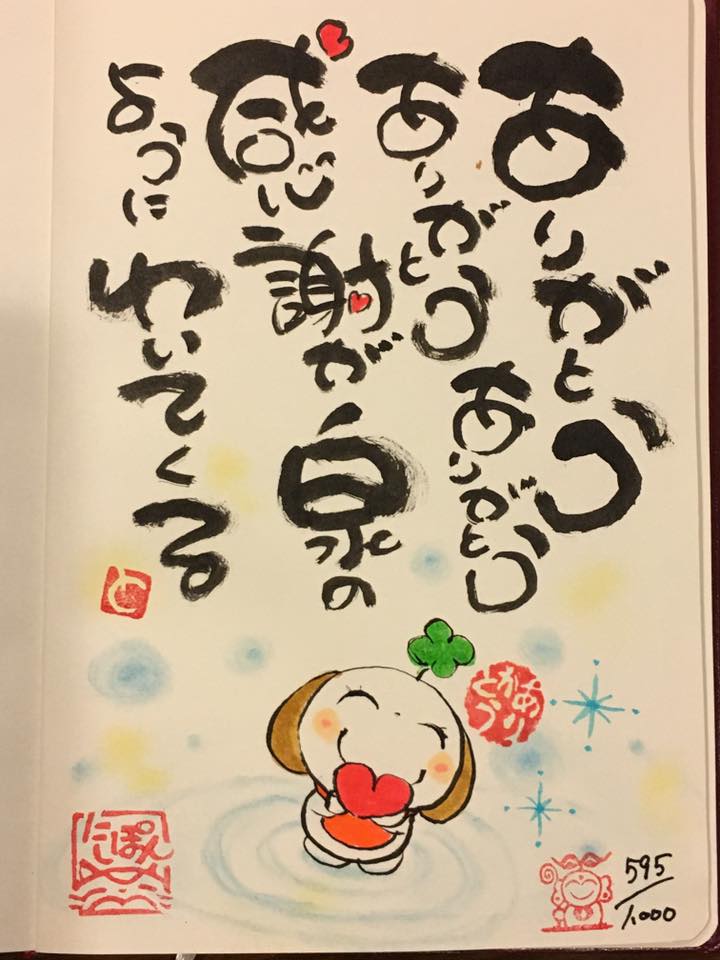 ありがとう
ありがとう
ありがとう
感謝が泉の
ように
わいてくる
と
ありがとう
595/1,000